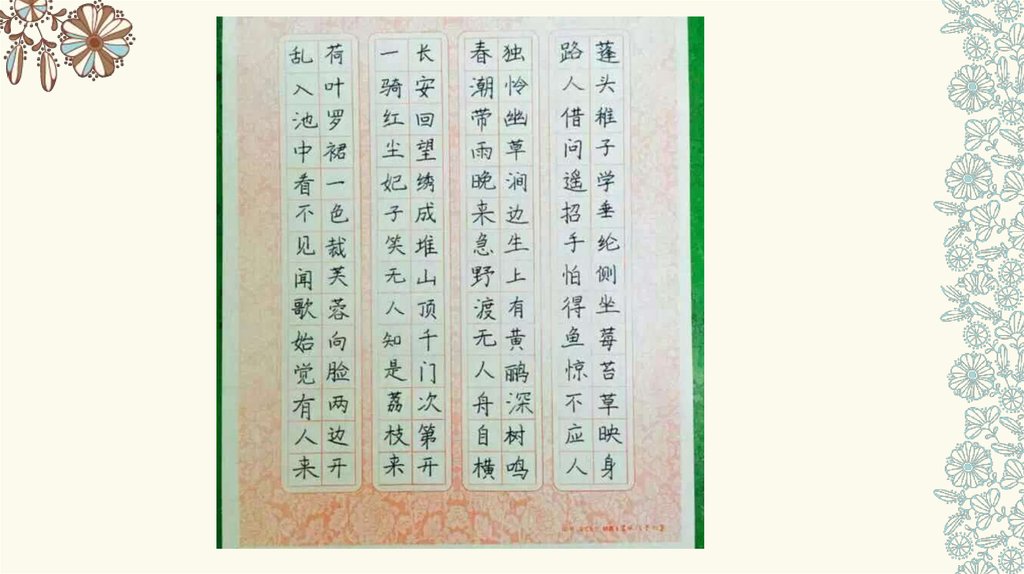 蓬头稚子学垂纶侧坐莓苔草映身
路人借问遥招手怕得鱼惊不应人
独怜幽草涧边生上有黄鹂深树鸣
春潮带雨晚来急野渡无人舟自横
长安回望绣成堆山顶千门次第开
一骑红尘妃子笑无人知是荔枝来
荷叶罗裙一色裁芙蓉向脸两边开
乱入池中看不见闻歌始觉有人来